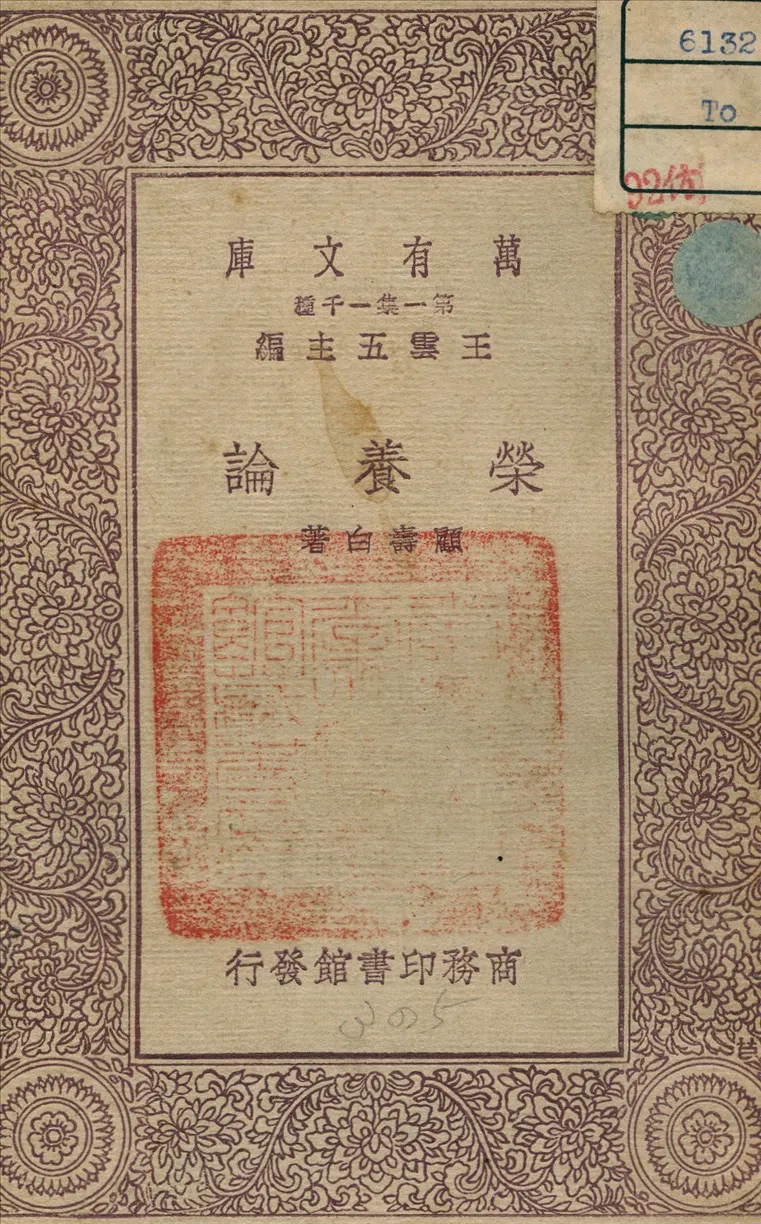 6132
To
萬有文庫
第一集一千種
王雲五主編
榮養論
顧壽白著
商務印書館發行
305